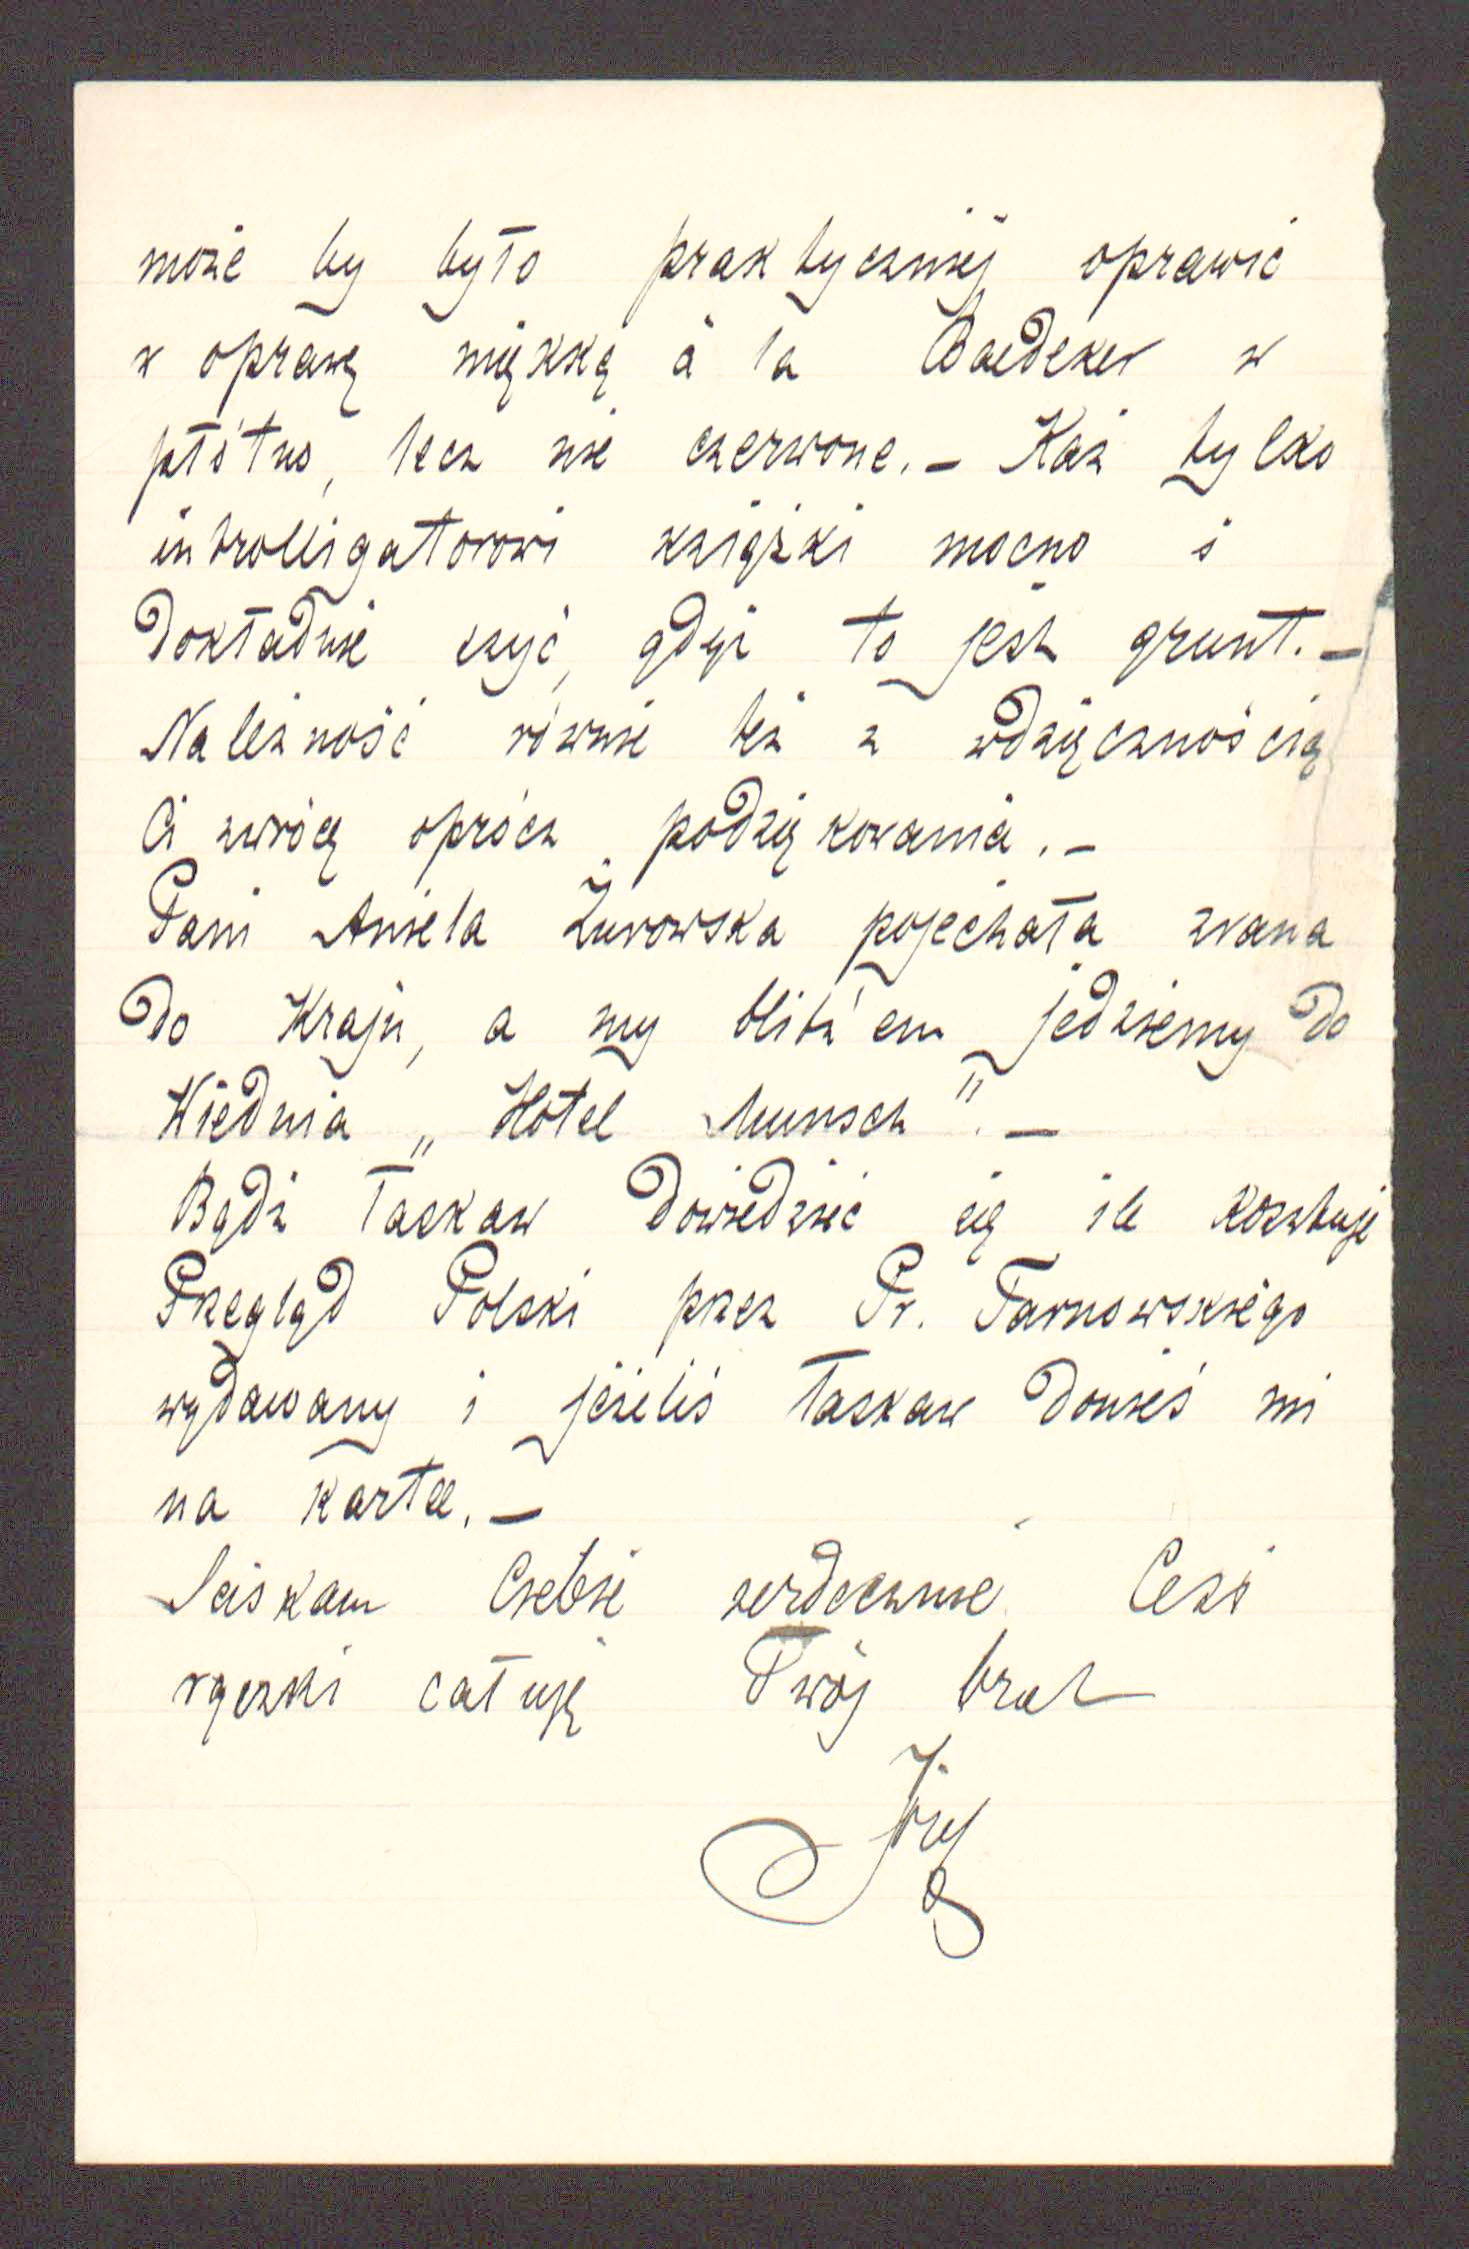 może by było praktyczniej oprawić
w oprawę miękką à la Baedeker w
płótno, lecz nie czerwone. – Każ tylko
introlligatorowi książki mocno i
dokładnie szyć, gdyż to jest grunt. –
Należność równie też z wdzięcznością
Ci zwrócę oprócz podziękowania. –
Pani Aniela Żurowska pojechała zrana
do Kraju, a my blitz'em jedziemy do
Wiednia „Hotel Munsch". –
Bądź łaskaw dowiedzieć się ile kosztuje
Przegląd Polski przez Pr. Tarnowskiego
wydawany i jeżeliś łaskaw donieś mi
na kartce. –
Sciskam Ciebie serdecznie Cesi
rączki całuję Twój brat
Józef